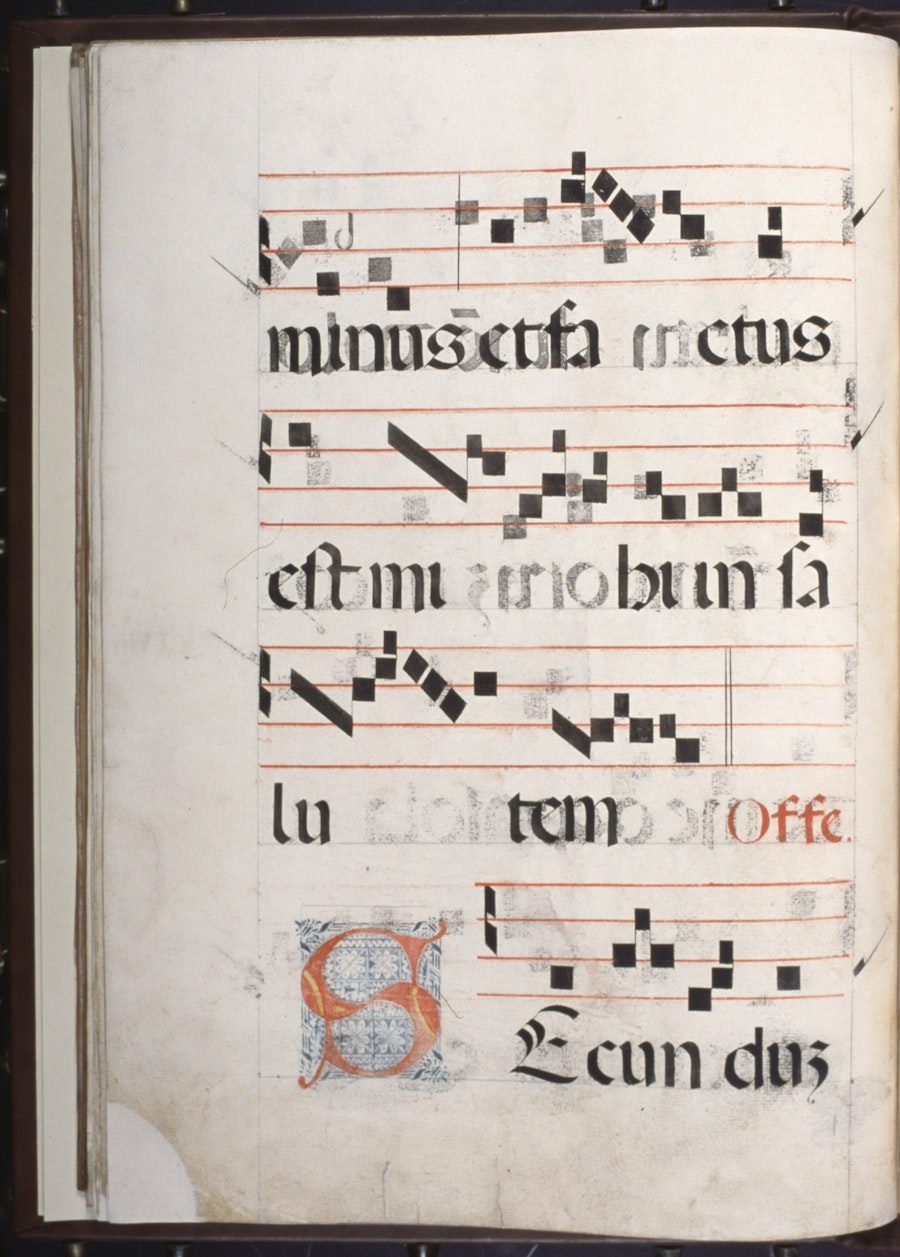 minus et fa ctus
est mi hi in sa
lu tem Offe.
SEcunduz